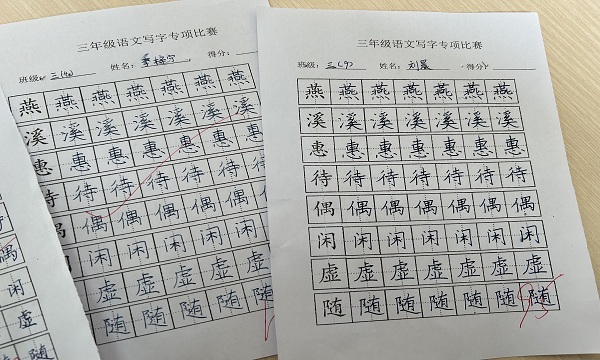 三年级语文写字专项比赛
班级: 三(4) 姓名: 得分:
燕 燕 燕 燕 燕 燕
溪 溪 溪 溪 溪 溪
惠 惠 惠 惠 惠 惠
待 待 待 待 待 待
偶 偶 偶 偶 偶
闲 闲 闲 闲
虚 虚 虚 虚
随 随 随 随
三年级语文写字专项比赛
班级: 三(9) 姓名: 刘晨 得分:
燕 燕 燕 燕 燕 燕 燕
溪 溪 溪 溪 溪 溪 溪
惠 惠 惠 惠 惠 惠 惠
待 待 待 待 待 待 待
偶 偶 偶 偶 偶 偶 偶
闲 闲 闲 闲 闲 闲 闲
虚 虚 虚 虚 虚 虚 虚
随 随 随 随 随 随 随
偶
闲
虚